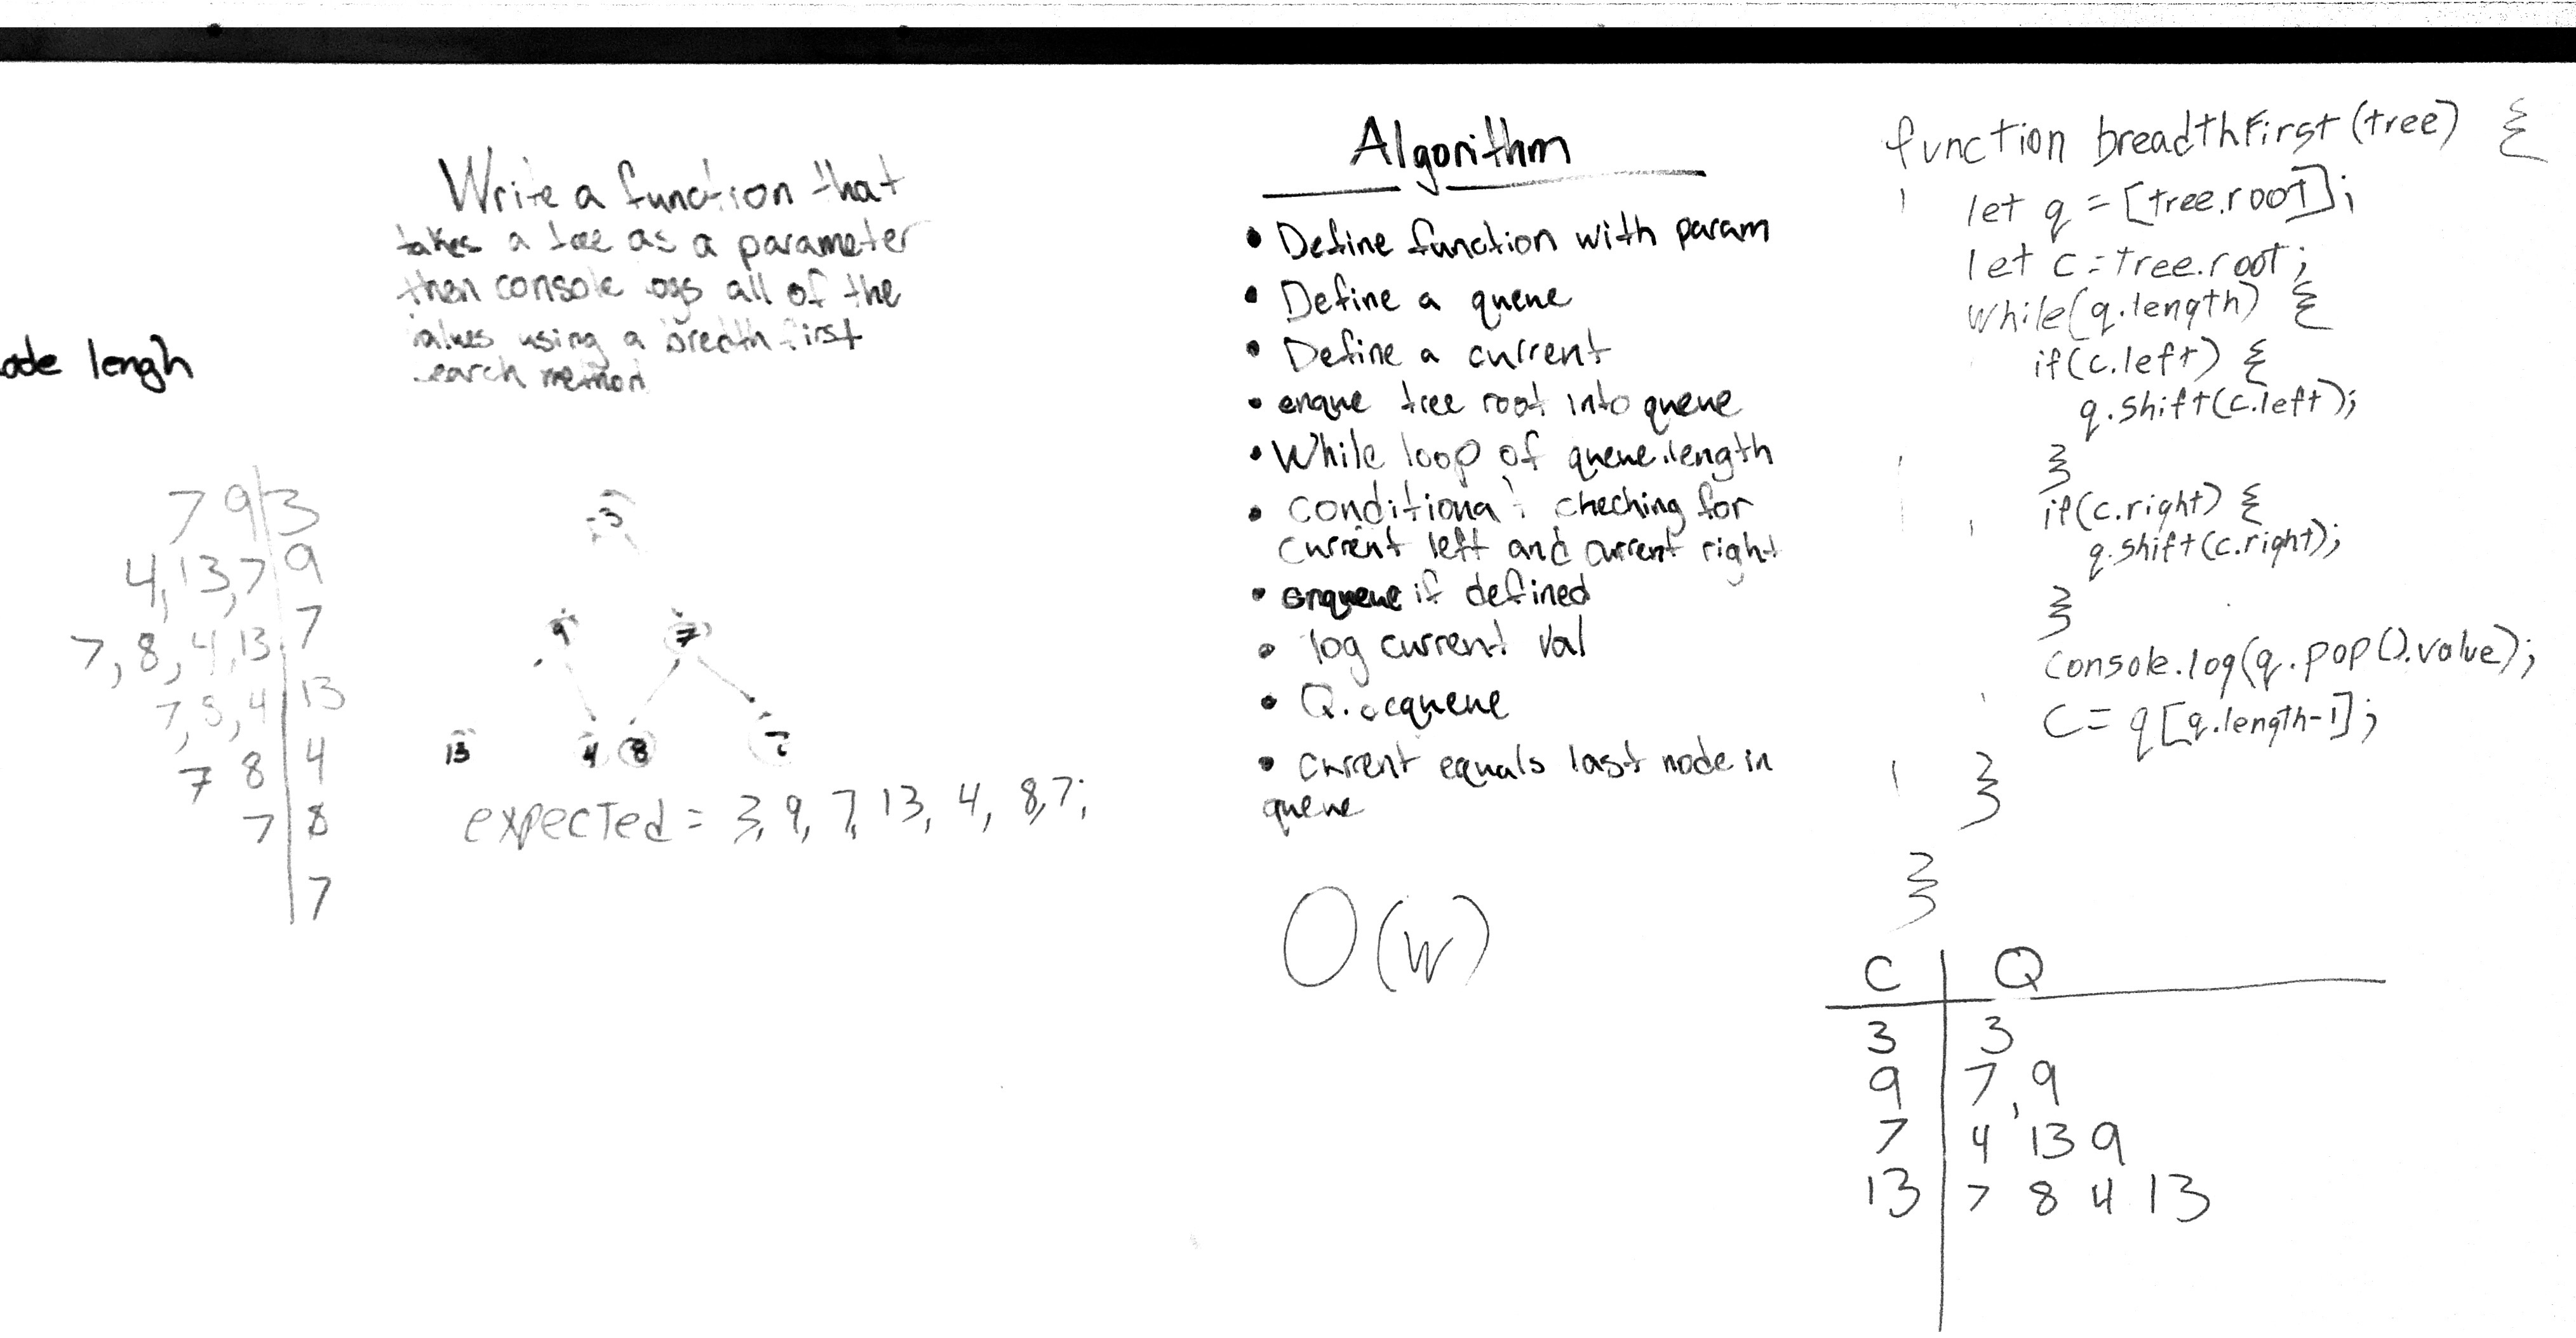 ode lengh
7 9 3
4, 13, 7 9
7, 8, 4, 13 7
7, 8, 4 13
7 8 4
7 8
7
Write a function that
takes a tree as a parameter
then console logs all of the
values using a breath first
search method
3
9 7
13 4 8 7
expected = 3, 9, 7, 13, 4, 8, 7;
Algorithm
• Define function with param
• Define a queue
• Define a current
• enque tree root into queue
• While loop of queue.length
• conditional checking for
current left and current right
• enqueue if defined
• log current val
• Q.
• current equals last node in
queue
O(w)
function breadthFirst(tree) {
let q = [tree.root];
let c = tree.root;
while(q.length) {
if(c.left) {
q.shift(c.left);
}
if(c.right) {
q.shift(c.right);
}
console.log(q.pop().value);
C = q[q.length-1];
}
}
C Q
3 3
9 7, 9
7 4 13 9
13 7 8 4 13